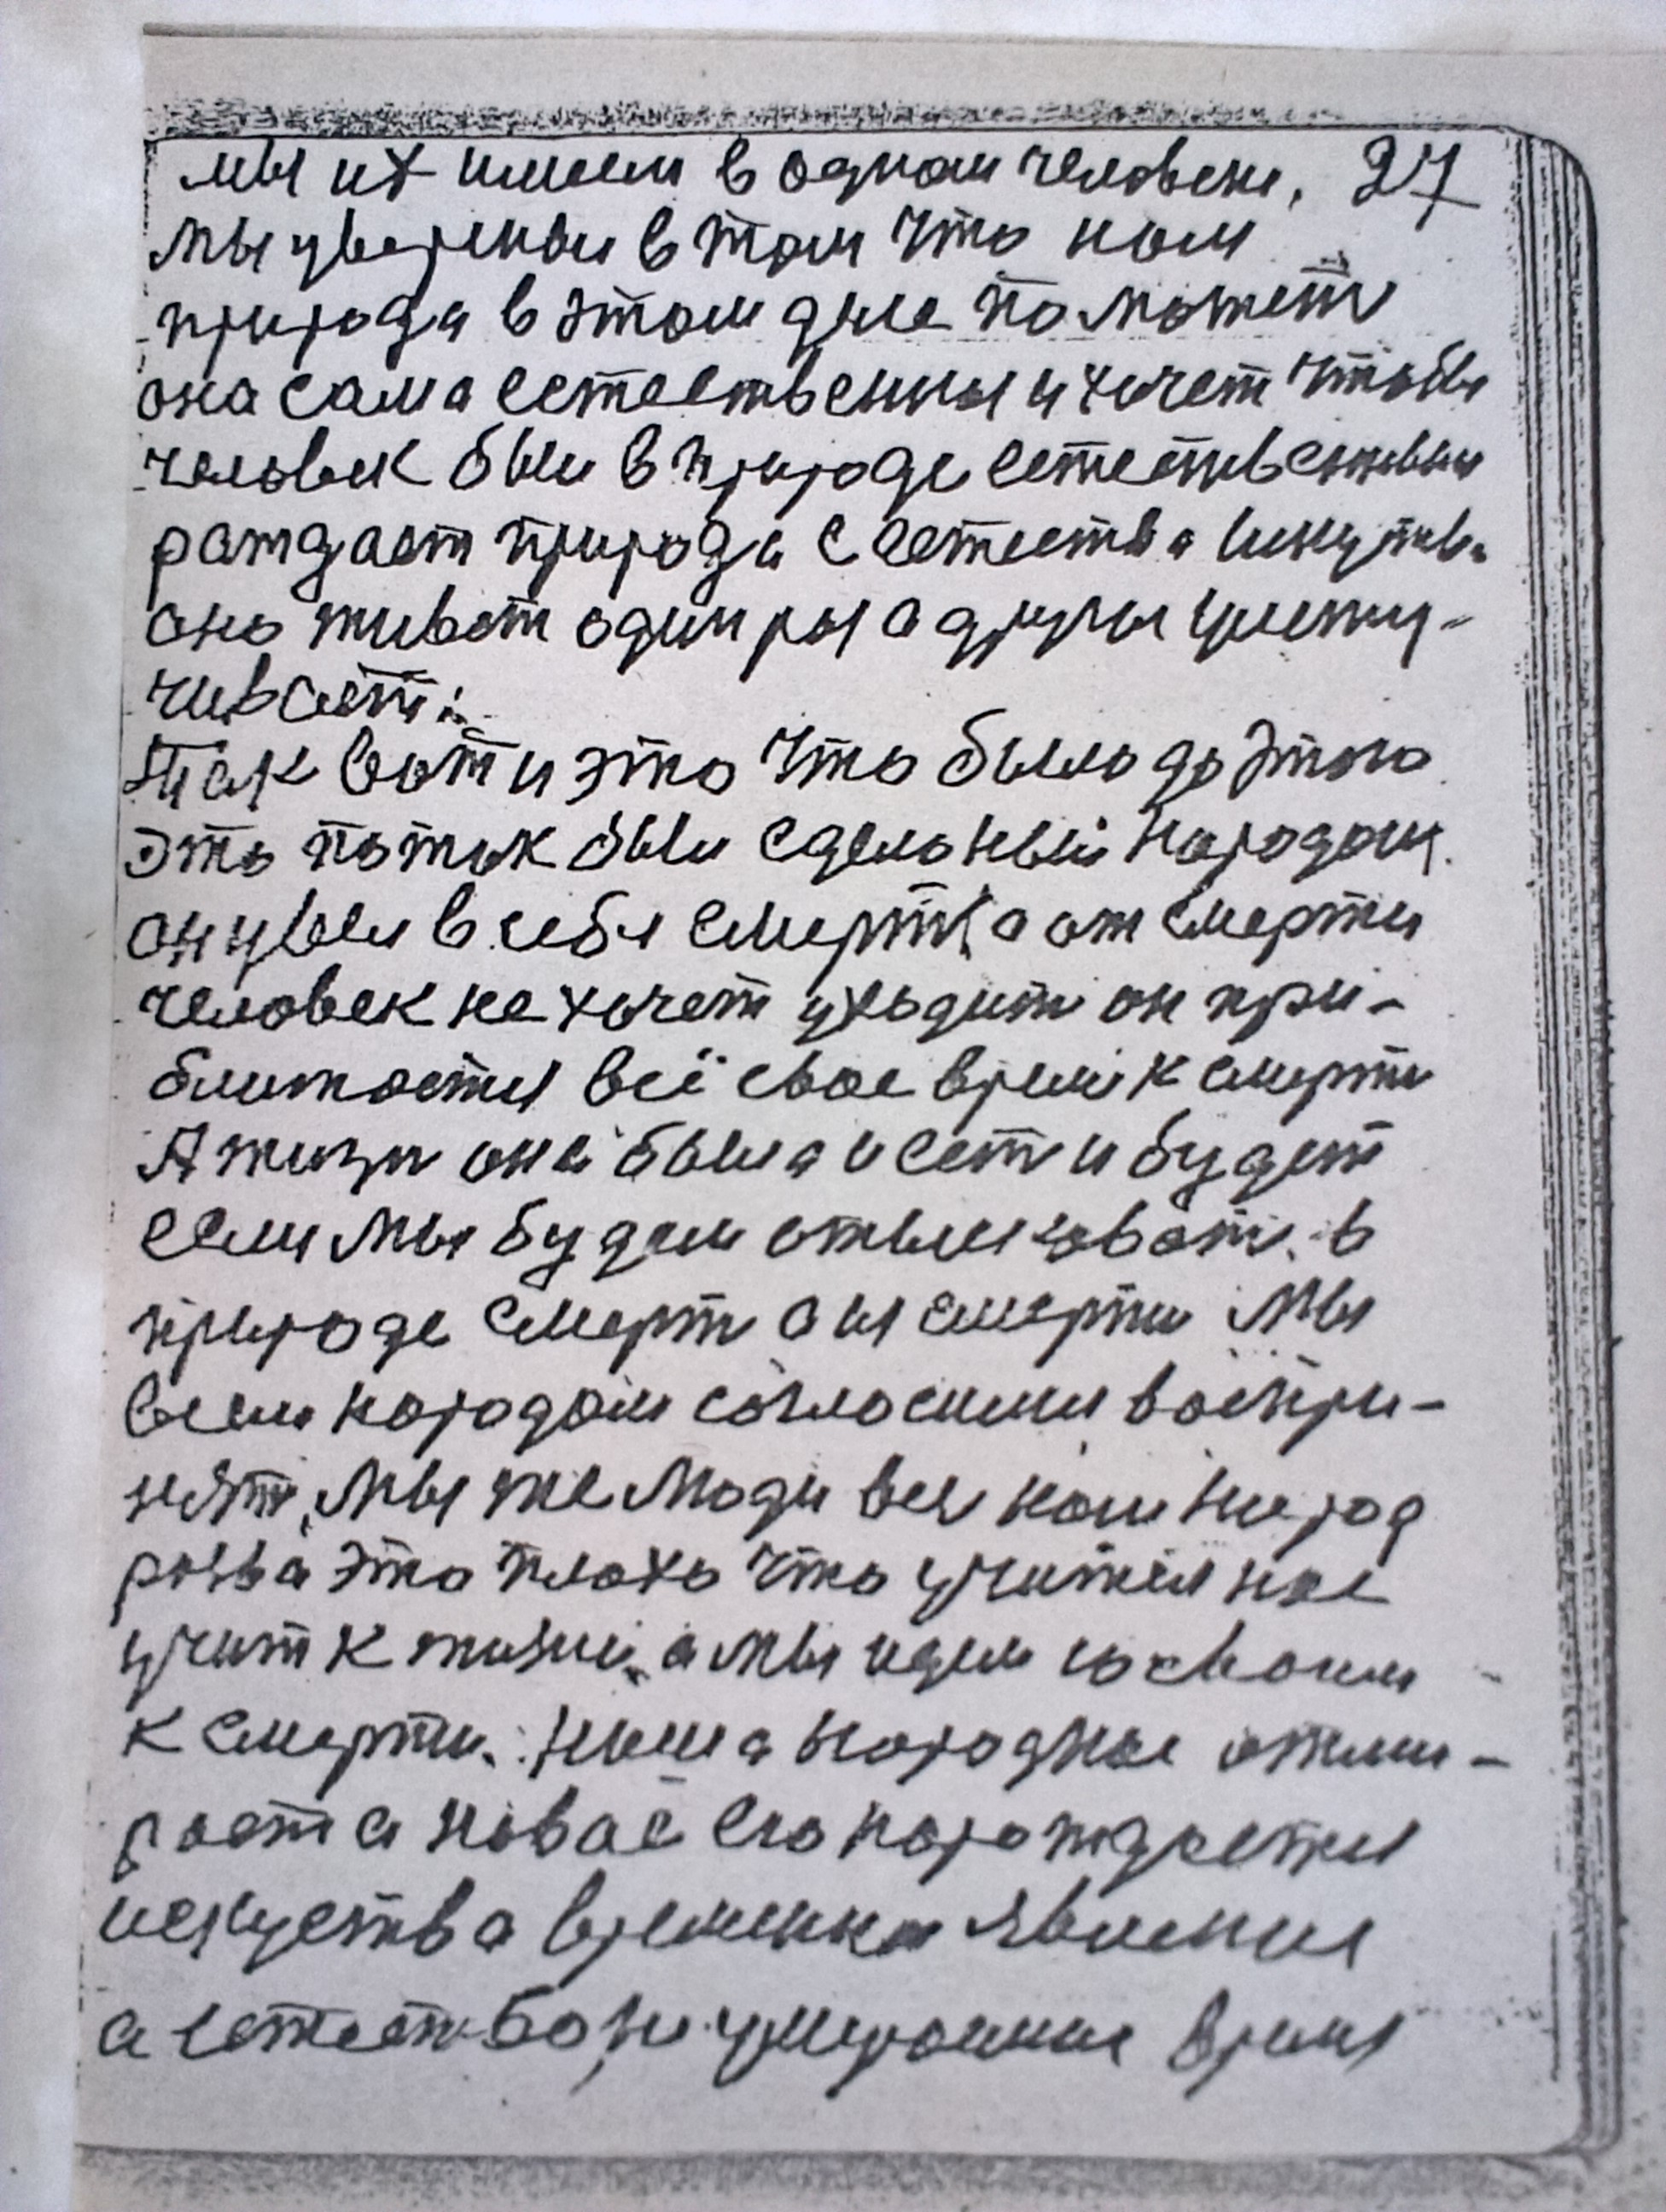 мы их имеем в одном человеке, 27
мы уверены в том что нам
природа в этом деле поможет
она сама естественны и хочет чтобы
человек был в природе естественным
рождает природа с естества
оно живёт один раз а другы
чивает:
так вот и это что было до этого
это поток был сделаный народом.
он увел в себя смерть а от смерти
человек не хочет уходить он при-
ближается всё свое время к смерти
А жизн она была и есть и будет
если мы будем в
природе смерт а из смерти мы
всем народом согласилися воспри-
нять, мы же люди весь наш народ
разва это плохо что учитель нас
учит к жизни, а мы идем со своим
к смерти. наша народное отми-
рает а новаё его нарождается
искуства временная явление
а естество не умерающие время